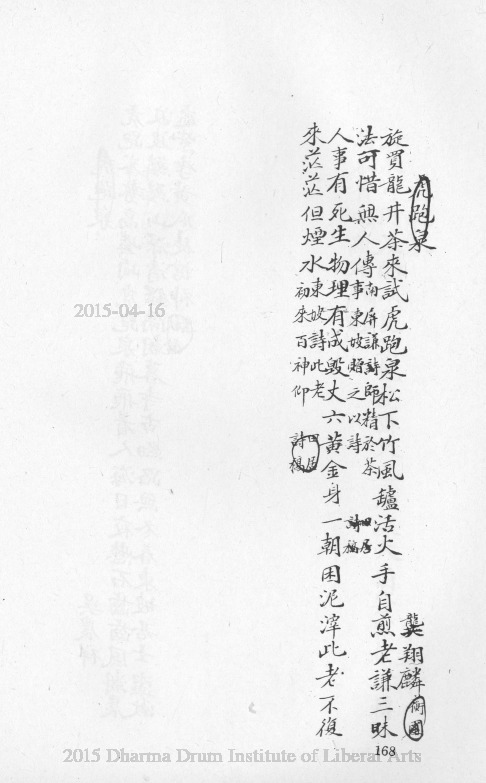 虎跑泉
龔翔麟蘅圃
旋買龍井茶來試虎跑泉松下竹風鑪活火手自煎老謙三昧
法可惜無人傳南屏謙師精於茶事東坡贈之以詩田居詩稿
人事有死生物理有成毀丈六黃金身一朝困泥滓此老不復
來茫茫但煙水東坡詩此老初來百神仰田居詩稿
2015-04-16
168
2015 Dharma Drum Institute of Liberal Arts